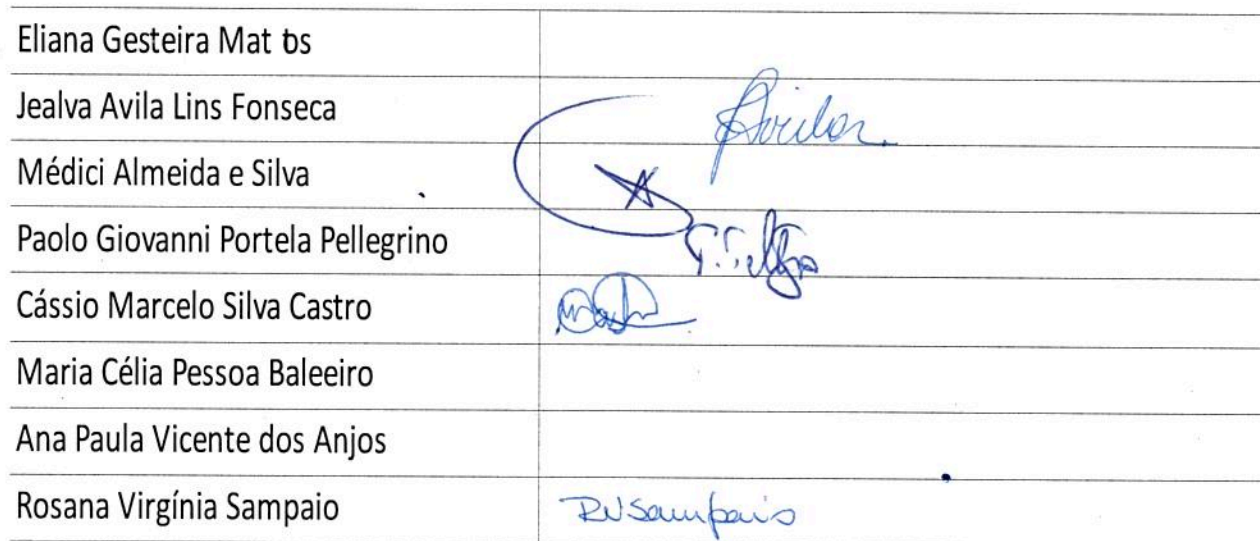 Eliana Gesteira Mat os
Jealva Avila Lins Fonseca
Médici Almeida e Silva
Paolo Giovanni Portela Pellegrino
Cássio Marcelo Silva Castro
Maria Célia Pessoa Baleeiro
Ana Paula Vicente dos Anjos
Rosana Virgínia Sampaio RVSampaio